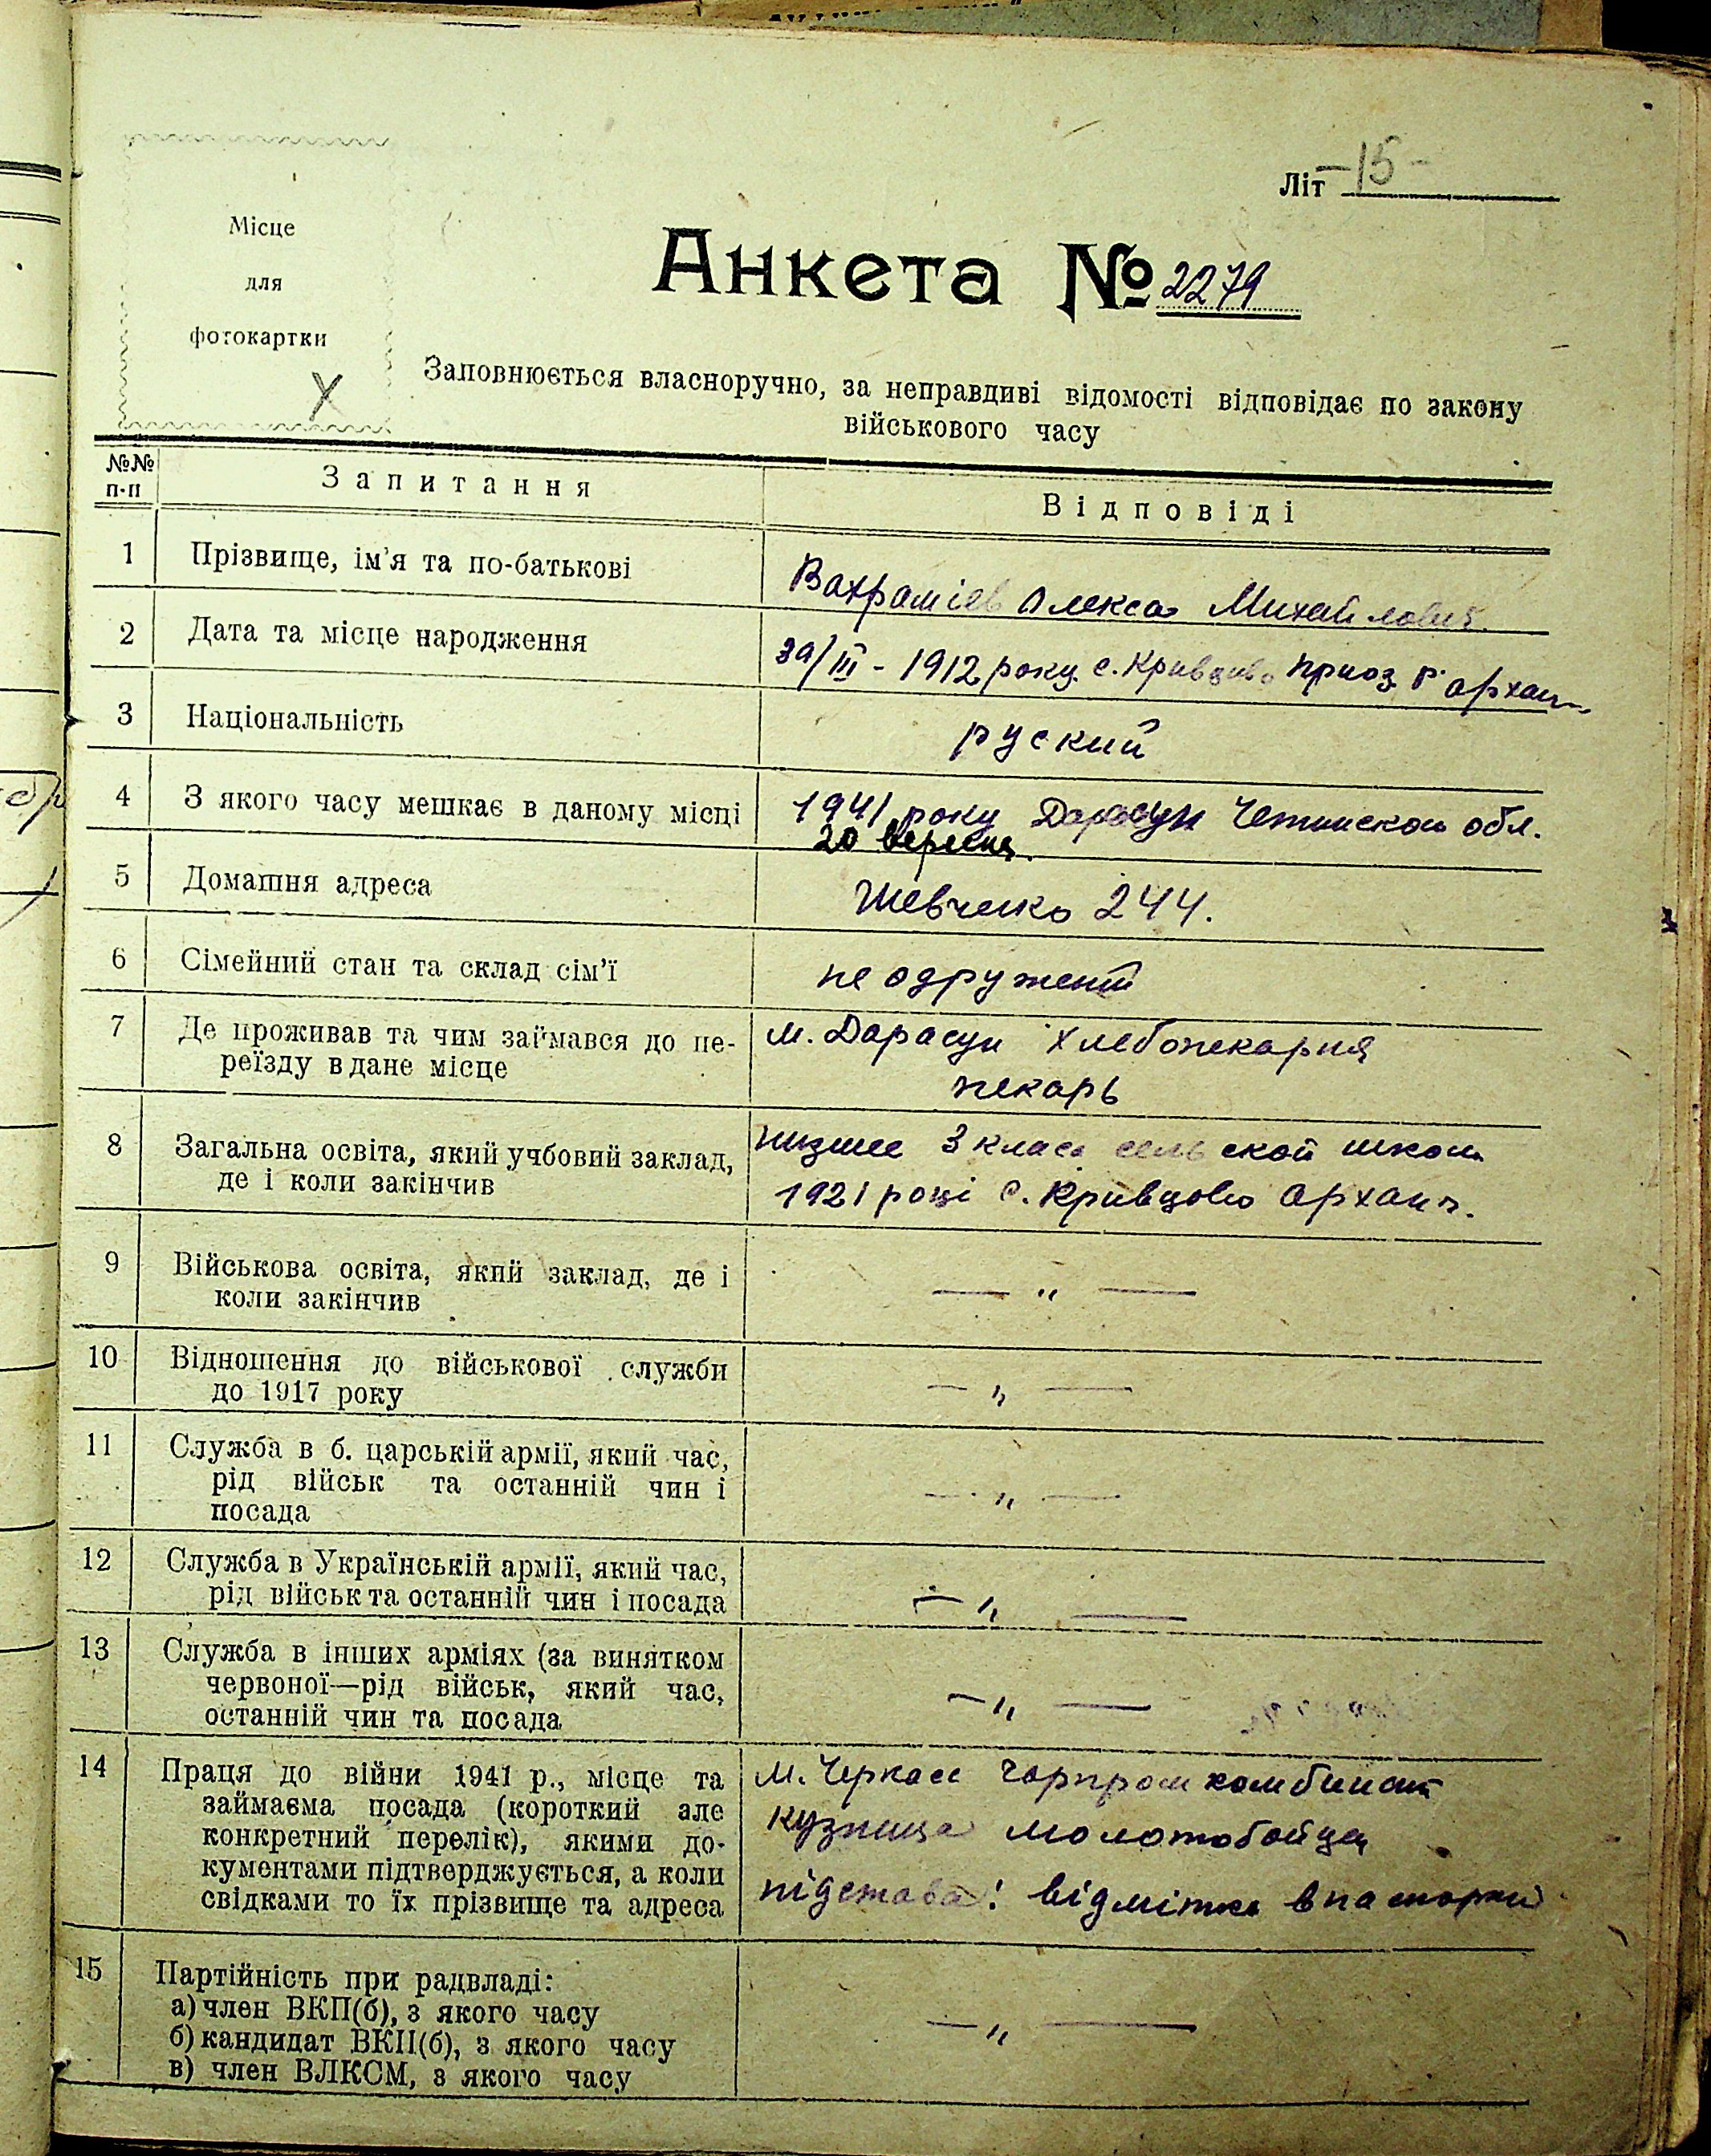 Літ -15-
Місце
для
фотокартки
Анкета № 2279
Заповнюється власноручно, за неправдиві відомості відповідає по закону
військового часу
№№ п-п Запитання Відповіді
1 Прізвище, ім'я та по-батькові
Вахраміев Олекса Михайлович
2 Дата та місце народження
/III - 1912 року с. Кривцово г. Архан
3 Національність
руский
4 З якого часу мешкає в даному місці
1941 року Дарасун Четинской обл.
20 вересня.
5 Домашня адреса
Шевченко 244.
6 Сімейний стан та склад сім'ї
не одружений
7 Де проживав та чим займався до пе-
реїзду в дане місце
м. Дарасун хлебопекарня
пекарь
8 Загальна освіта, який учбовий заклад,
де і коли закінчив
низшее 3 класа сельской школи
1921 році с. Кривцово Арханг.
9 Військова освіта, який заклад, де і
коли закінчив
— „ —
10 Відношення до військової служби
до 1917 року
— „ —
11 Служба в б. царській армії, який час,
рід військ та останній чин і
посада
— „ —
12 Служба в Українській армії, який час,
рід військ та останній чин і посада
— „ —
13 Служба в інших арміях (за винятком
червоної—рід військ, який час,
останній чин та посада
— „ —
14 Праця до війни 1941 р., місце та
займаєма посада (короткий але
конкретний перелік), якими до-
кументами підтверджується, а коли
свідками то їх прізвище та адреса
м. Черкаси комбинат
кузница молотобойца
підстава: відмітка в паспорти
15 Партійність при радвладі:
а) член ВКП(б), з якого часу
б) кандидат ВКП(б), з якого часу
в) член ВЛКСМ, з якого часу
— „ —